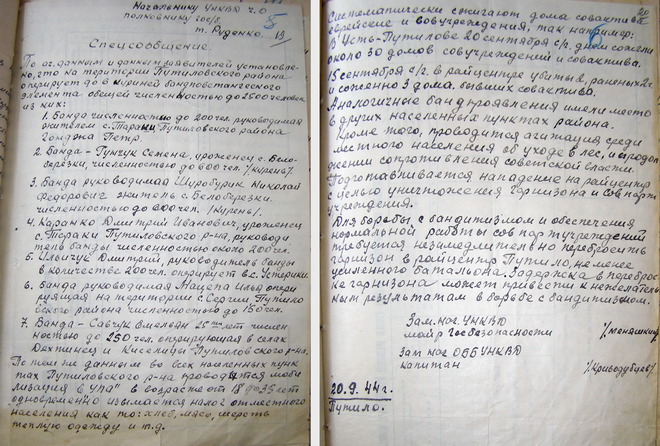 Начальнику УНКВД Ч.О.
полковнику гос/б
т. Руденко.
5
13
Спецсообщение.
По аг. данным и данным заявителей установле-
но, что на територии Путиловского района
оперирует до 8 куриней бандповстанческого
элемента общей численностью до 2500 человек
из них:
1. Банда численностью до 200 чел. руководимая
жителем с. Тораки Путиловского района
Гонджа Петр.
2. Банда - Гунчук Семена, уроженец с. Бело-
березки, численностью до 600 чел. /курень/.
3. Банда руководимая Шуробурик Николай
Федорович житель с. Белоберезки.
численностью до 600 чел. /курень/.
4. Каранко Дмитрий Иванович, уроженец
с. Тораки Путиловского р-на, руководи
тель банды численностью около 200 чел.
5. Ильичук Дмитрий, руководитель банды
в количестве 200 чел. оперирует в с. Устерики.
6. Банда руководимая Мацепа Илья опери
рующая на територии с. Сергии Путило
вского района численностью до 150 чел.
7. Банда - Савчук Емельян 25 лет числен
ностью до 250 чел. оперирующая в селах
Дихтинец и Киселицы Путиловского р-на.
По тем же данным во всех населенных пунк-
тах Путиловского р-на проводится моби
лизация в "УПА" в возрасте от 18 до 35 лет
одновременно взымается налог от местного
населения как то: хлеб, мясо, шерсть
теплую одежду и т.д.
20
Систематически сжигают дома совактива
еврейские и совучреждения, так например:
В Усть-Путилове 20 сентября с/г. днем сожгли
около 30 домов совучреждений и совактива.
15 сентября с/г. в райцентре убиты 2, раненых 2
и сожжено 3 дома бывших совактива.
Аналогичные бандпроявления имели место
в других населенных пунктах района.
Кроме того, проводится агитация среди
местного населения об уходе в лес, и продол
жении сопротивления советской власти.
Подготавливается нападение на райцентр
с целью уничтожения гарнизона и совпарт
учреждения.
Для борьбы с бандитизмом и обеспечения
нормальной работы совпартучреждений
требуется незамедлительно перебросить
гарнизон в райцентр Путило, не менее
усиленного батальона. Задержка в переброс
ке гарнизона может привести к нежелатель
ным результатам в борьбе с бандитизмом.
Зам. нач. УНКВД
майор госбезопасности
/Меняшкин/
Зам нач ОББ УНКВД
капитан
/Криводубцев/
20.9.44г.
Путило.